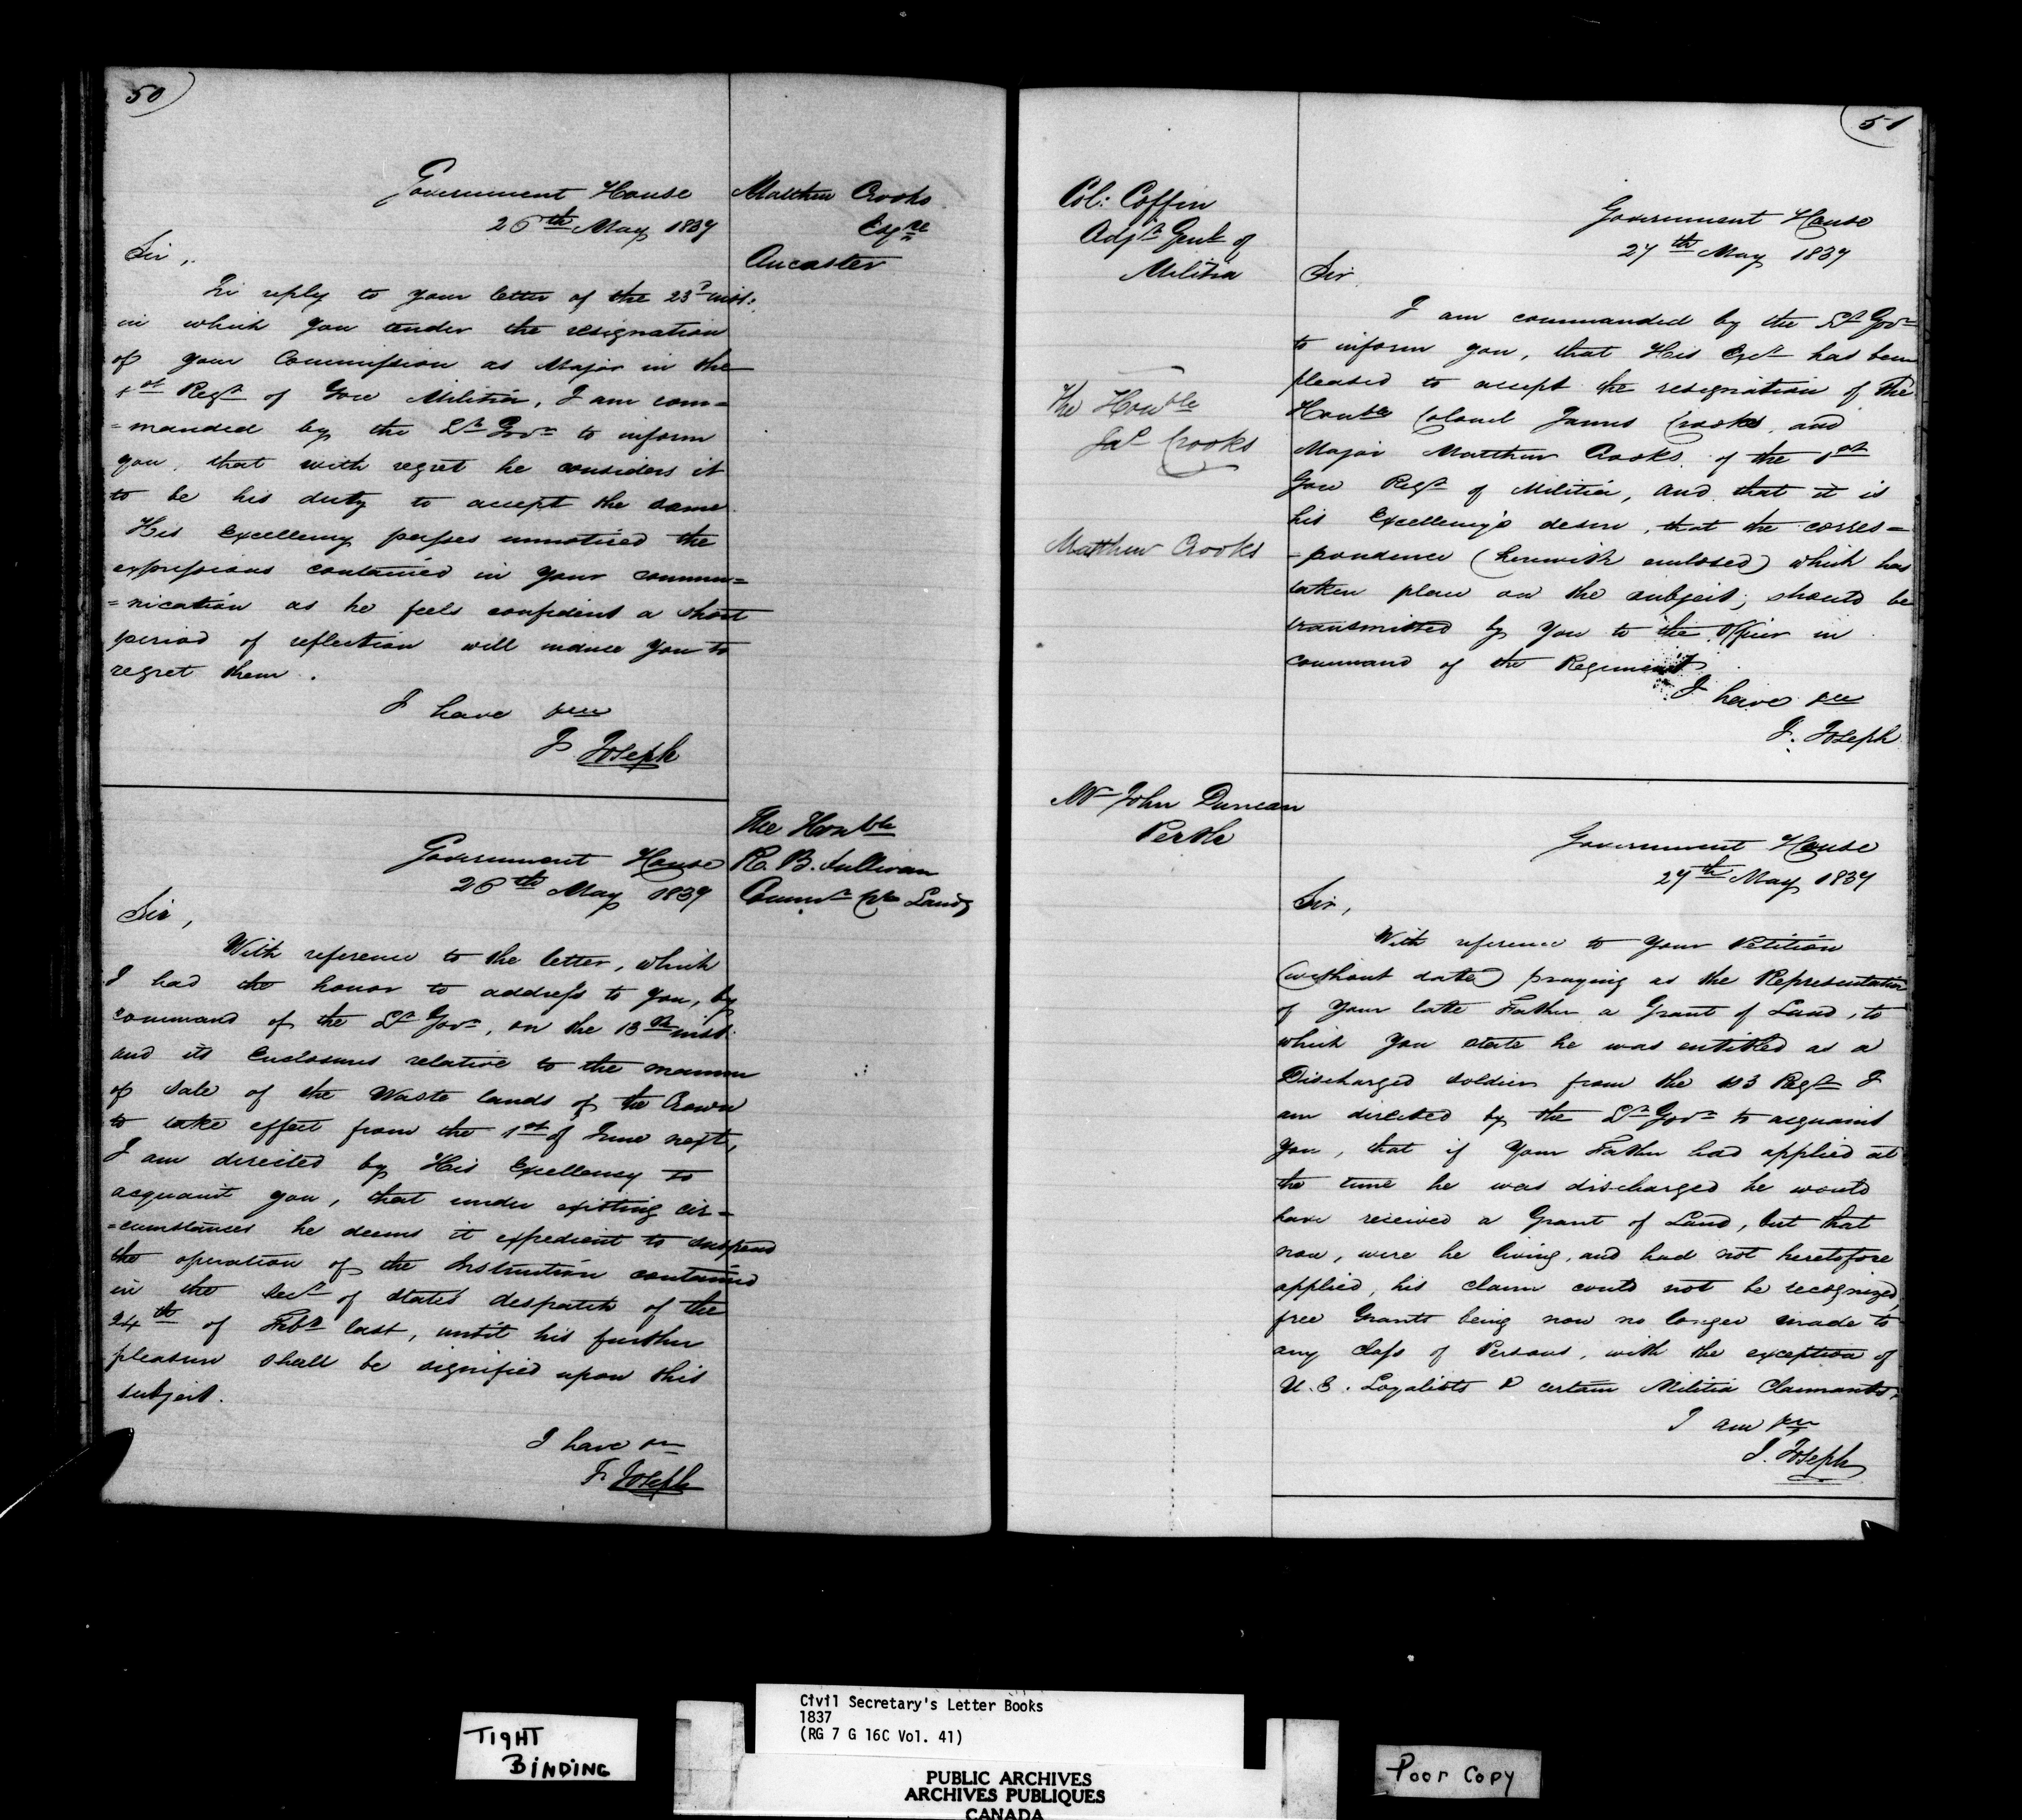 50
Government House
26th May 1837
Matthew Crooks
Esqre
Ancaster
Sir,
In reply to your letter of the 23d inst:
in which you tender the resignation
of your Commission as Major in the
1st Regt of Gore Militia, I am com=
=manded by the Lt Govr to inform
you, that with regret he considers it
to be his duty to accept the same
His Excellency passes unnoticed the
expressions contained in your commu=
=nication as he feels confident a short
period of reflection will induce you to
regret them.
I have &c
J Joseph
The Honble
R. B. Sullivan
Commr Cn Lands
Government House
26th May 1837
Sir,
With reference to the letter, which
I had the honor to address to you, by
command of the Lt Govr, on the 13th inst.
and its Enclosures relative to the manner
of Sale of the Waste lands of the Crown
to take effect from the 1st of June next,
I am directed by His Excellency to
acquaint you, that under existing cir=
=cumstances he deems it expedient to suspend
the operation of the Instruction contained
in the Sect of State's despatch of the
24th of Feby last, until his further
pleasure shall be signified upon this
subject.
I have &c
J. Joseph
51
Col: Coffin
Adjt Genl of
Militia
The Honble
Jas Crooks
Matthew Crooks
Government House
27th May 1837
Sir.
I am commanded by the Lt Govr
to inform you, that His Excy has been
pleased to accept the resignation of The
Honble Colonel James Crooks, and
Major Matthew Crooks, of the 1st
Gore Regt of Militia, and that it is
his Excellency's desire, that the corres=
=pondence (herewith enclosed) which has
taken place on the subject; should be
transmitted by You to the Officer in
command of the Regiment
I have &c
J. Joseph
Mr John Duncan
Perth
Government House
27th May 1837
Sir,
With reference to Your Petition
(without date) praying as the Representative
of Your late Father a Grant of Land, to
which You state he was entitled as a
Discharged Soldier from the 103 Regt I
am directed by the Lt Govr to acquaint
You, that if Your Father had applied at
the time he was discharged he would
have received a Grant of Land, but that
now, were he living, and had not heretofore
applied, his claim could not be recognized,
free Grants being now no longer made to
any Class of Persons, with the exception of
U.E. Loyalists & certain Militia Claimants.
I am &c
J. Joseph
TIGHT
BINDING
Civil Secretary's Letter Books
1837
(RG 7 G 16C Vol. 41)
PUBLIC ARCHIVES
ARCHIVES PUBLIQUES
CANADA
Poor Copy